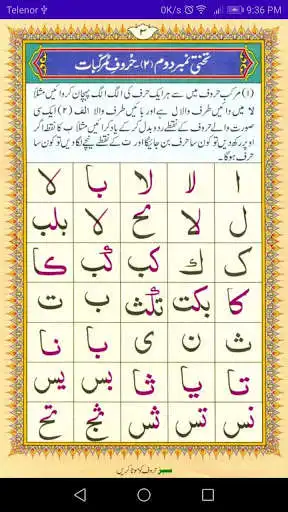 Telenor 0K/s 9:36 PM
۳
تختی نمبر دوم (۲) - حروفِ مرکبات
(۱) مرکب حروف میں سے ہر ایک حرف کی الگ الگ پہچان کروائیں مثلاً
لا میں دائیں طرف والا ل ہے اور بائیں طرف والا الف (۲) ایک سی
صورت والے حروف کے نقطے ردو بدل کر کے یاد کرائیں مثلاً ب کا نقطہ اگر
اوپر رکھ دیں تو کون سا حرف بن جائیگا اور ت کے نقطے نیچے لگا دیں تو کون سا
حرف ہوگا۔
ا لا لا با لا
ل لا لا بلب
ک ك كب كا
كا بكت تكث ب ت
ث ن ی با نا
تا یا ثا بس یس
نس تس ثس ثج تح
سبز حروف کو موٹا کریں